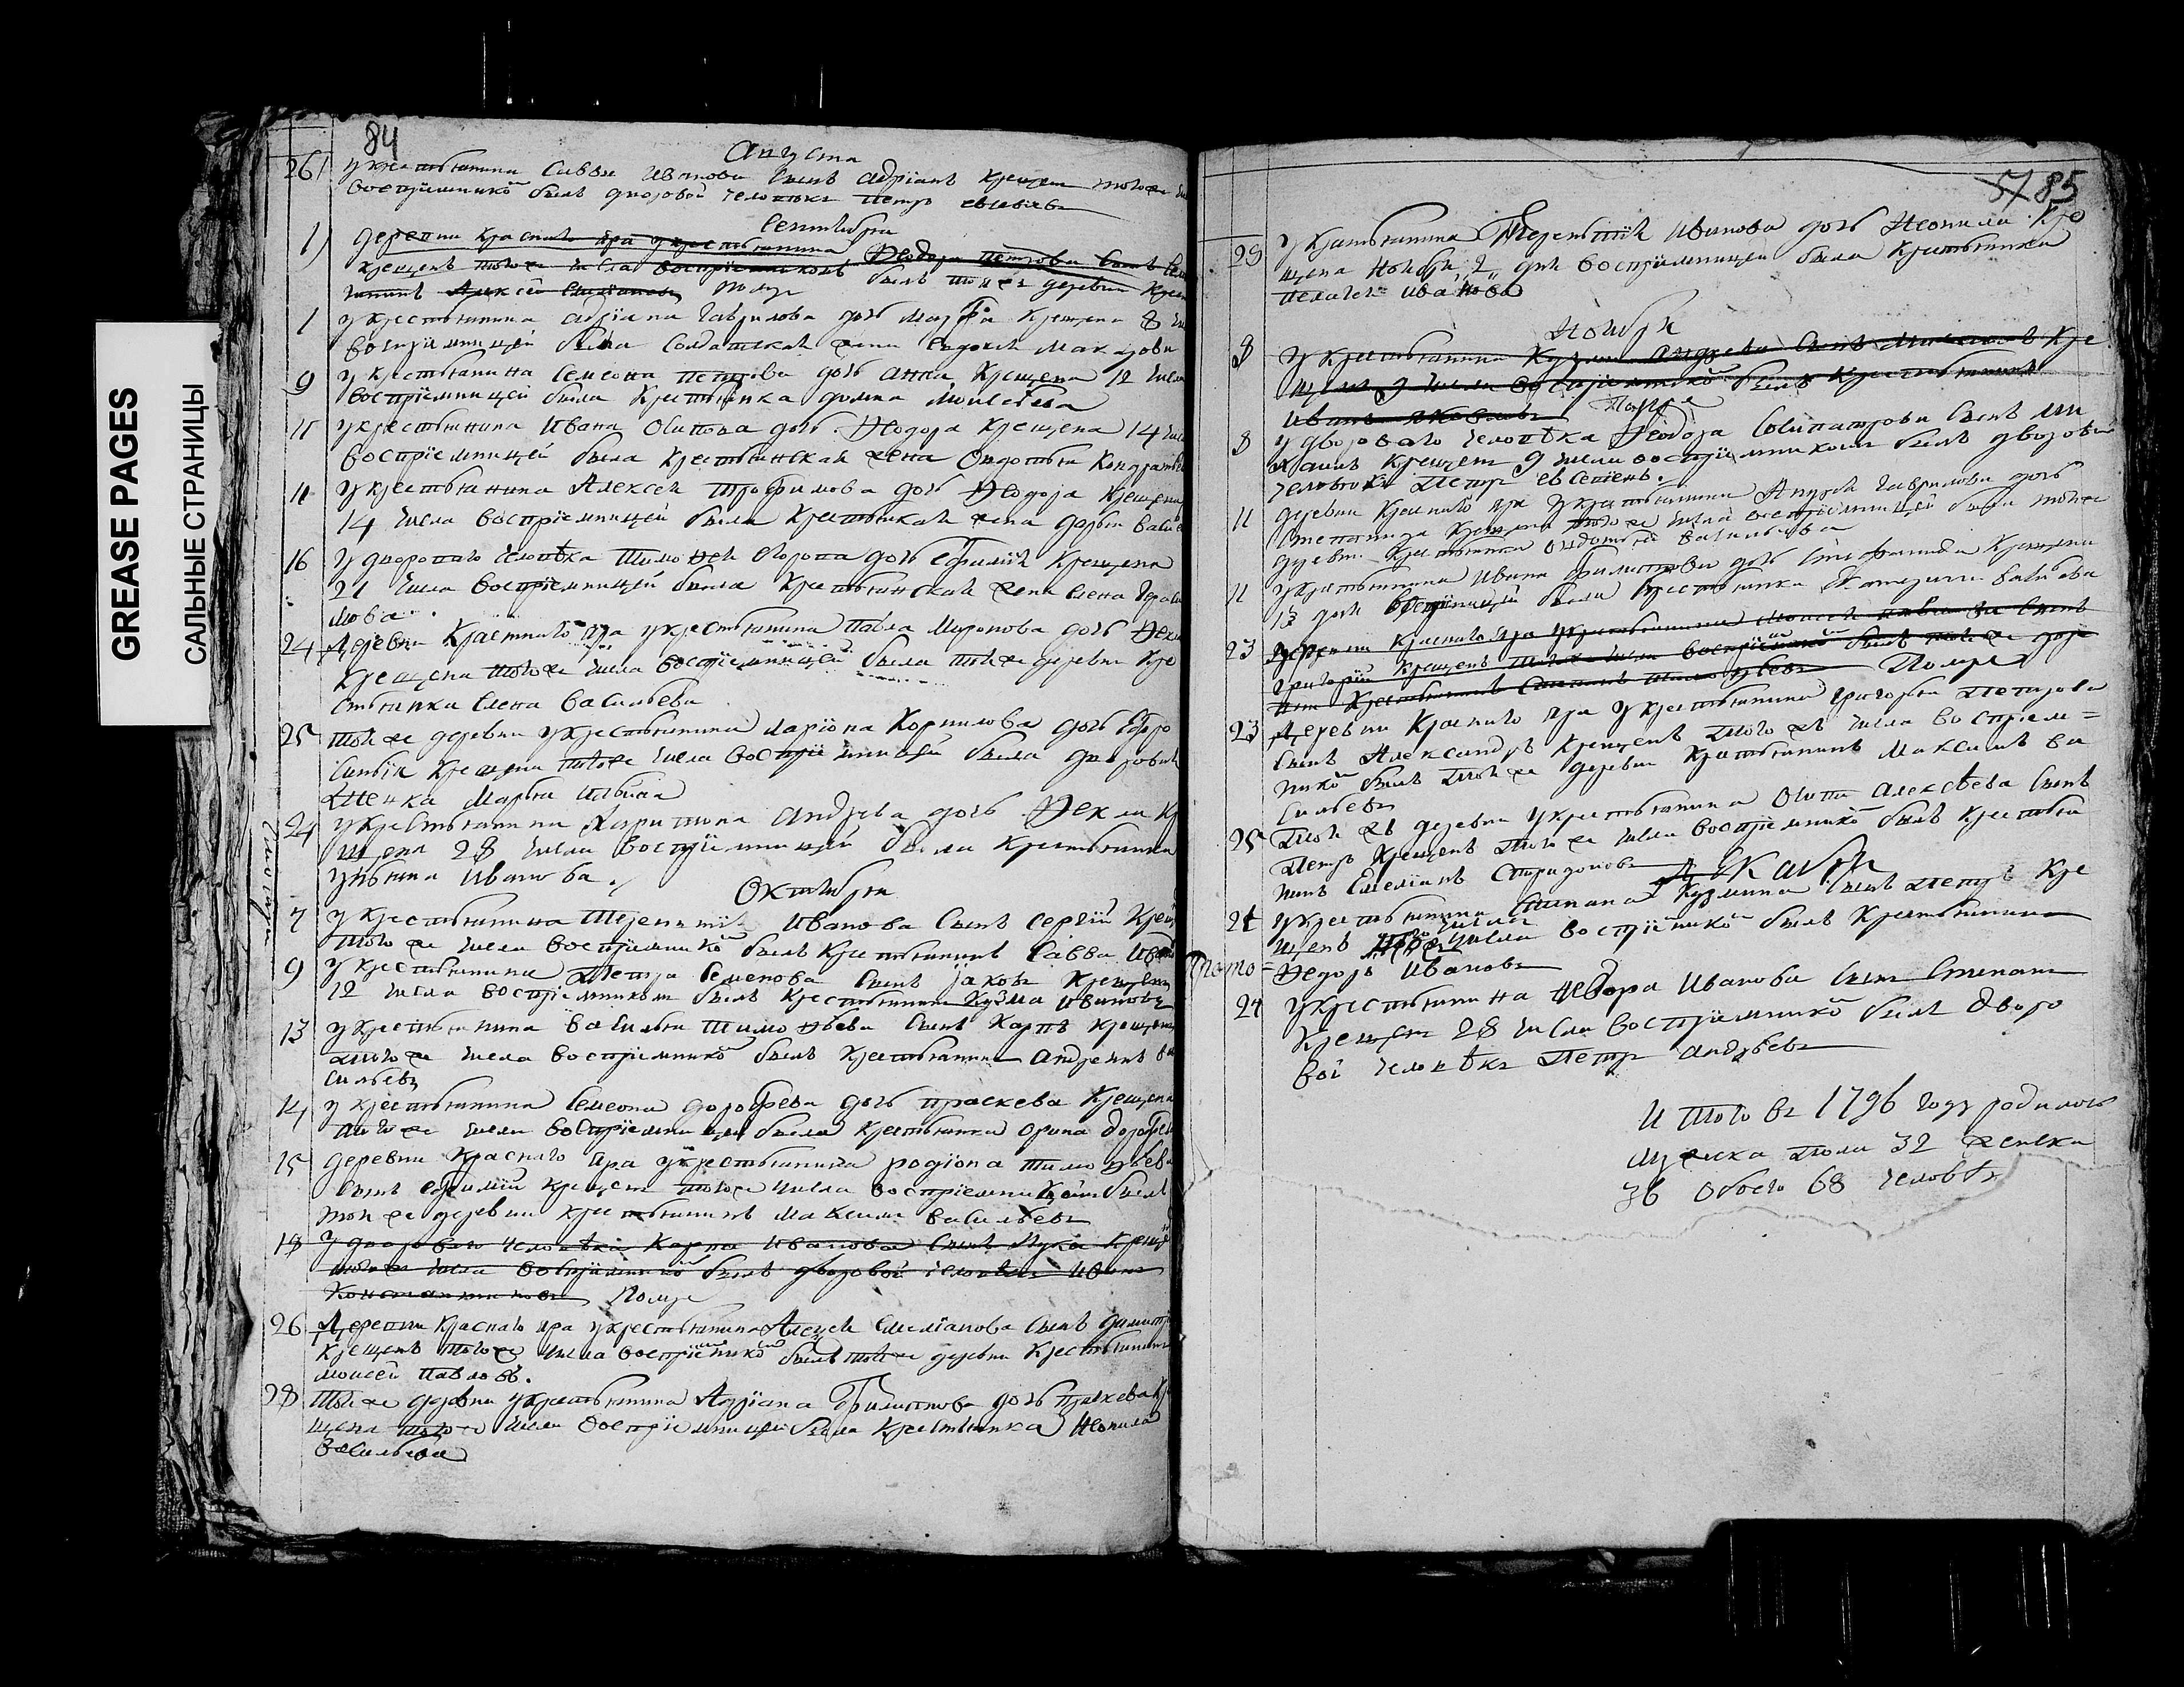 GREASE PAGES
САЛЬНЫЕ СТРАНИЦЫ
84
Августа
26 У крестьянина Саввы Иванова сынъ Адрїанъ крещен того же
восприемникомъ былъ дворовой человѣкъ Петръ
Сентября
1) Деревни Краснаго Яра у крестьянина Ѳеодора Петрова сынъ
крещенъ того же числа восприемникомъ былъ той же деревни
Алексѣй Емелїановъ помре
1 У крестьянина Адрїана Гаврилова дочь Марѳа крещена 8
восприемницей была солдатская жена Евдокия Макарова
9 У крестьянина Семеона Петрова дочь Анна крещена 12 числа
восприемницей была крестьянка Домна Моисѣева
11 У крестьянина Ивана Осипова дочь Ѳеодора крещена 14
восприемницей была крестьянская жена Овдотья
11 У крестьянина Алексея Трофимова дочь Ѳеодора крещена
14 числа восприемницей была крестьянская жена Дарья
16 У двороваго человѣка Тимоѳея дочь Ефимия крещена
21 числа восприемницей была крестьянская жена Елена
мова
24 Деревни Краснаго Яра у крестьянина Павла Миронова дочь
крещена того же числа восприемницей была той же деревни кре
стьянка Елена Васильева
25 Той же деревни у крестьянина Ларїона Корнилова дочь Ефро
синья крещена того же числа восприемницей была дворовая
женка Марья
24 У крестьянина Харитона Андрева дочь Ѳекла
щена 28 числа восприемницей была крестьянка
Ульяна Иванова
Октября
7 У крестьянина Терентия Иванова сынъ Сергїй
того же числа восприемникомъ былъ крестьянинъ Савва
9 У крестьянина Петра Семенова сынъ Їаковъ крещенъ
12 числа восприемникомъ былъ крестьянинъ Кузма Ивановъ
13 У крестьянина Василья Тимоѳѣева сынъ Карпъ крещенъ
того же числа восприемникомъ былъ крестьянинъ Андреянъ Ва
сильевъ
14 У крестьянина Семеона Дорофеева дочь Праскева крещена
того же числа восприемницей была крестьянка Орина
15 Деревни Краснаго Яра у крестьянина Родїона Тимоѳѣева
сынъ Ефимий крещен того же числа восприемникомъ былъ
той же деревни крестьянинъ Максимъ Васильевъ
18 У двороваго человѣка Карпа Иванова сынъ Лука
того же числа восприемникомъ былъ дворовой человѣкъ Иванъ
Константиновъ помре
26 Деревни Краснаго Яра у крестьянина Алексея Емелїанова сынъ
крещенъ того же числа восприемникомъ былъ той же деревни крестьянинъ
Моисей Павловъ.
28 Той же деревни у крестьянина Адрїана Филиппова дочь
щена того же числа восприемницей была крестьянка Неонила
Васильева
5/85
29 У крестьянина Терентия Иванова дочь Неонила кре
щена ноября 2 дня восприемницей была крестьянка
Пелагея Иванова
Ноября
8 У крестьянина Кузмы Андреева сынъ кре
щенъ 9 числа восприемникомъ былъ крестьянинъ
Иванъ Яковлевъ помре
8 У двороваго человѣка Ѳеодора сынъ Ми
хаилъ крещенъ 9 числа восприемникомъ былъ дворовой
человѣкъ Петръ
11 Деревни Краснаго Яра у крестьянина Гаврилова дочь
крещена того же числа восприемницей была той же
деревни крестьянка Овдотья Васильева
11 У крестьянина Ивана Филиппова дочь крещена
13 дня восприемницей была крестьянка Катерина
23 Деревни Краснаго Яра у крестьянина Моисея Павлова сынъ
Григорий крещенъ того же числа восприемникомъ былъ той же дере
вни крестьянинъ Помре
23 Деревни Краснаго Яра у крестьянина Григорья Петрова
сынъ Александръ крещенъ того жъ числа восприем=
никомъ былъ той же деревни крестьянинъ Максимъ Ва
сильевъ
25 Той жъ деревни у крестьянина Осипа Алексѣева сынъ
Петръ крещенъ того же числа восприемникомъ былъ крестья
нинъ Емелїанъ Спиридоновъ
Декабря
21 У крестьянина Степана Кузмина сынъ Петръ кре
щенъ числа восприемникомъ былъ крестьянинъ
Ѳедоръ Ивановъ
24 У крестьянина Ѳедора Иванова сынъ Степанъ
крещен 28 числа восприемникомъ былъ дворо
вой человѣкъ Петръ Андрѣевъ
И того въ 1796 году родилось
мужеска пола 32 женска
36 обоего 68 человѣкъ